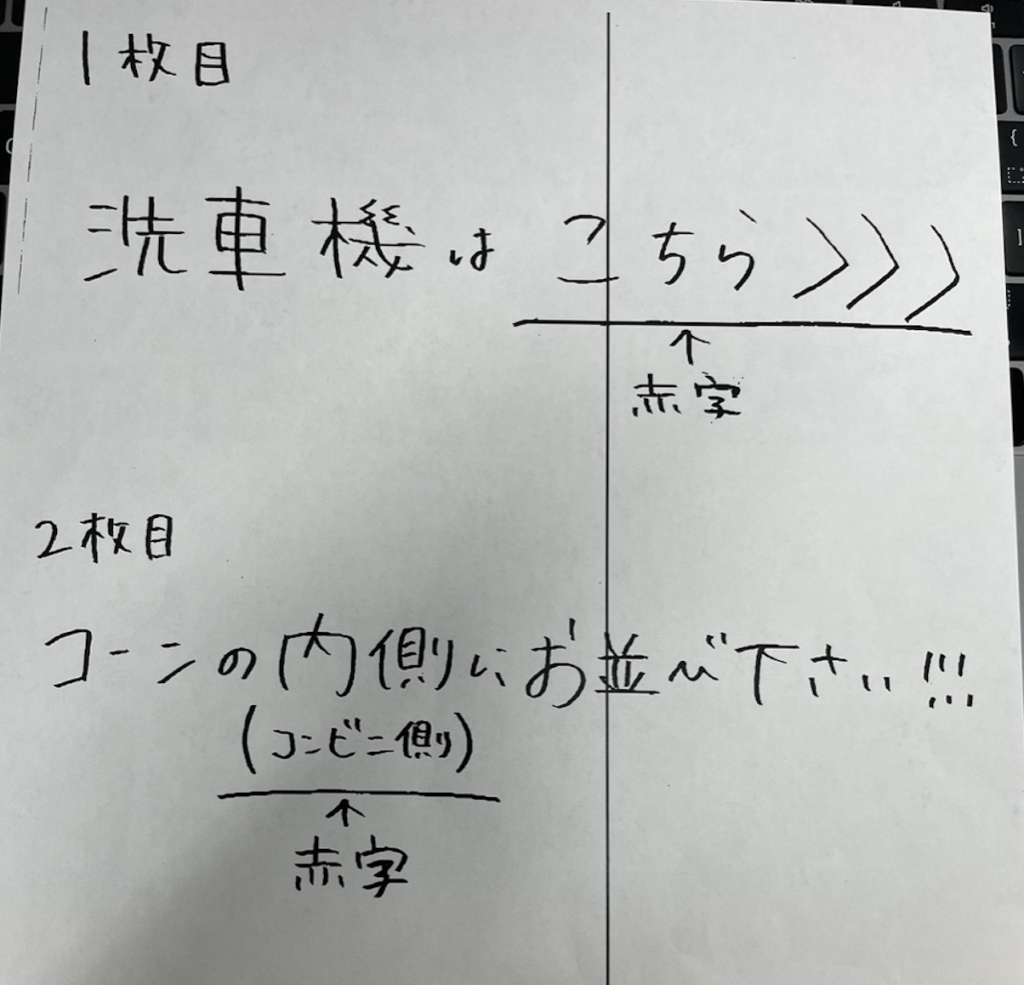 1枚目
洗車機は こちら >>>
↑
赤字
2枚目
コーンの内側にお並べ下さい!!!
(コンビニ側)
↑
赤字